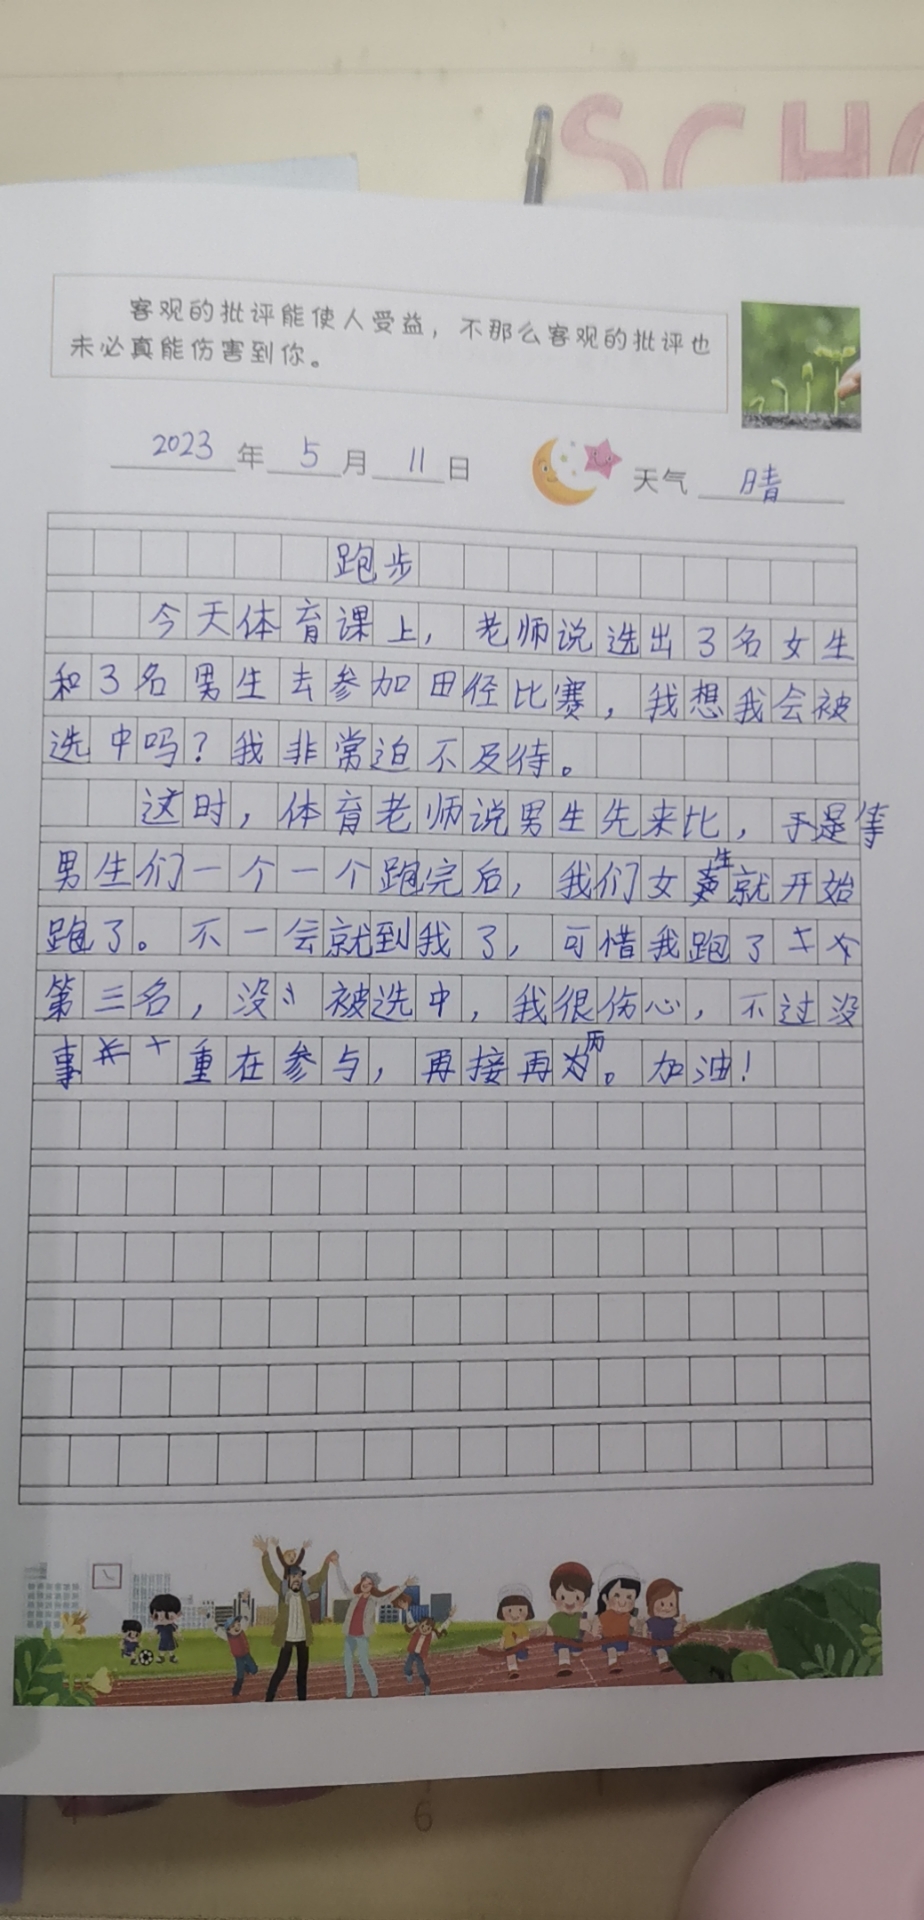 SCHO
客观的批评能使人受益，不那么客观的批评也
未必真能伤害到你。
2023年5月11日 天气 晴
跑步
今天体育课上，老师说选出3名女生
和3名男生去参加田径比赛，我想我会被
选中吗？我非常迫不及待。
这时，体育老师说男生先来比，于是等
男生们一个一个跑完后，我们女生就开始
跑了。不一会就到我了，可惜我跑了
第三名，没被选中，我很伤心，不过没
事 重在参与，再接再厉。加油！
6